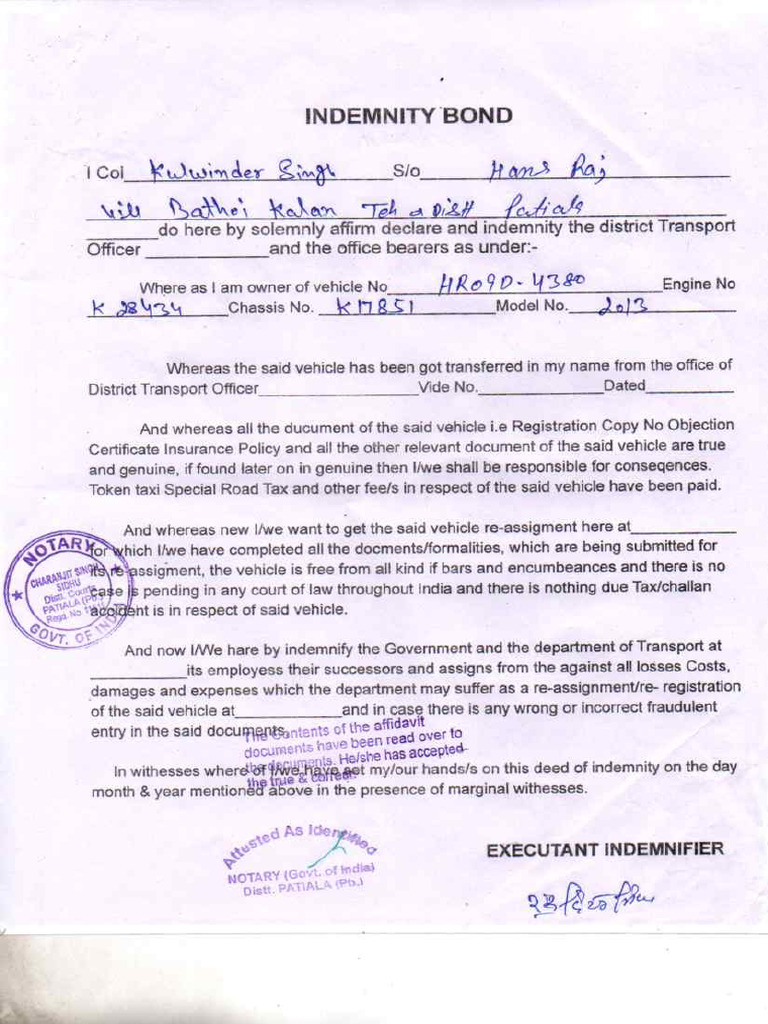 INDEMNITY BOND
I Col Kulwinder Singh S/o Hans Raj
Vill Bathoi Kalan Teh & Distt Patiala
________do here by solemnly affirm declare and indemnity the district Transport
Officer ____________and the office bearers as under:-
Where as I am owner of vehicle No HR09D-4380 Engine No
K 28434 Chassis No. K17851 Model No. 2013
Whereas the said vehicle has been got transferred in my name from the office of
District Transport Officer____________________Vide No.______________Dated__________
And whereas all the ducument of the said vehicle i.e Registration Copy No Objection
Certificate Insurance Policy and all the other relevant document of the said vehicle are true
and genuine, if found later on in genuine then I/we shall be responsible for conseqences.
Token taxi Special Road Tax and other fee/s in respect of the said vehicle have been paid.
And whereas new I/we want to get the said vehicle re-assigment here at____________
for which I/we have completed all the docments/formalities, which are being submitted for
its re-assigment, the vehicle is free from all kind if bars and encumbeances and there is no
case is pending in any court of law throughout India and there is nothing due Tax/challan
accident is in respect of said vehicle.
NOTARY
CHARANJIT SINGH
SIDHU
Distt. Court
PATIALA (Pb.)
Regd. No.
GOVT. OF INDIA
And now I/We hare by indemnify the Government and the department of Transport at
____________its employess their successors and assigns from the against all losses Costs,
damages and expenses which the department may suffer as a re-assignment/re- registration
of the said vehicle at_____________and in case there is any wrong or incorrect fraudulent
entry in the said documents.
The Contents of the affidavit
documents have been read over to
the documents. He/she has accepted
the true & correct.
In witnesses where of I/we have set my/our hands/s on this deed of indemnity on the day
month & year mentioned above in the presence of marginal witnesses.
Attested As Identified
NOTARY (Govt. of India)
Distt. PATIALA (Pb.)
EXECUTANT INDEMNIFIER